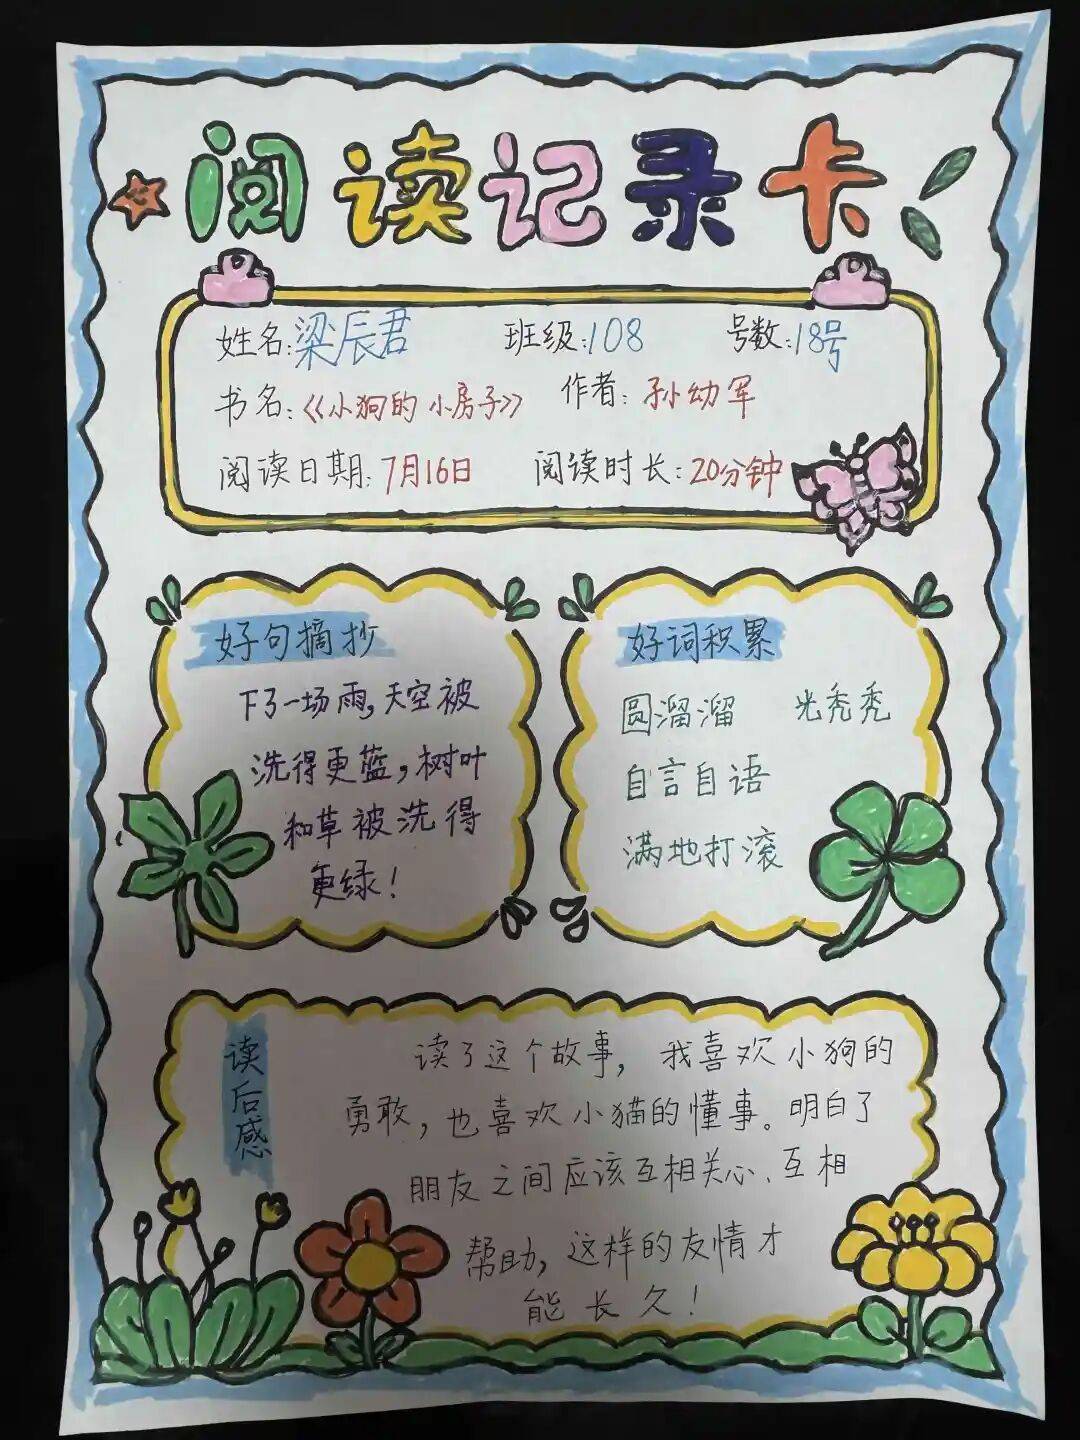 阅读记录卡
姓名:梁辰君 班级:108 号数:18号
书名:《小狗的小房子》 作者:孙幼军
阅读日期:7月16日 阅读时长:20分钟
好句摘抄
下了一场雨,天空被
洗得更蓝,树叶
和草被洗得
更绿!
好词积累
圆溜溜 光秃秃
自言自语
满地打滚
读后感
读了这个故事,我喜欢小狗的
勇敢,也喜欢小猫的懂事。明白了
朋友之间应该互相关心、互相
帮助,这样的友情才
能长久!